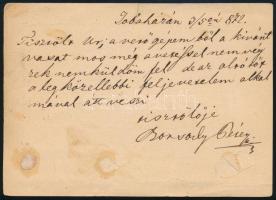 Tobaházán 9/5én 882.
Tisztölt Ur, a verő gépem ből a kivánt
vasat mos még a veréssel nem vég
zek nem küldöm fel de az alsó
a leg közellebbi feljövetelem alkal
mával átt veszi
tisztelője
Borsody Péter